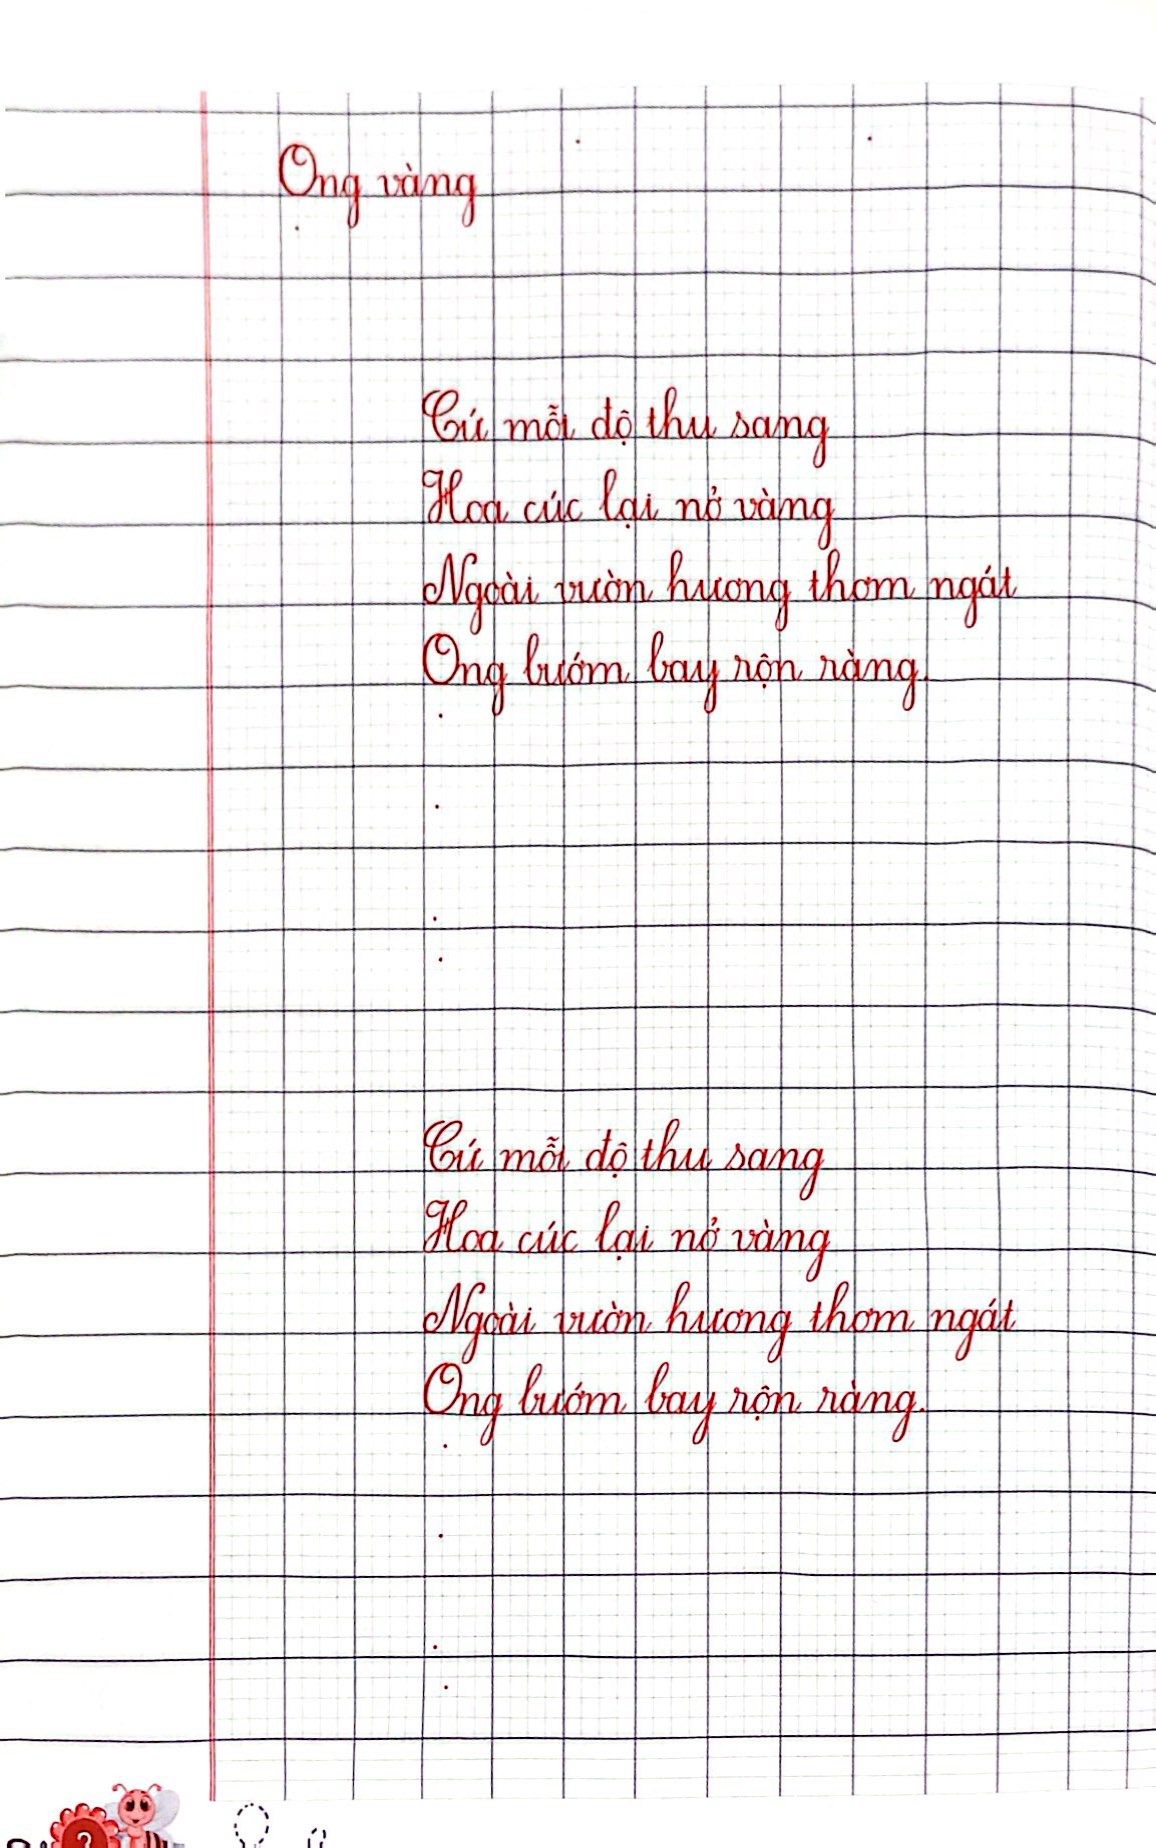 Ong vàng
Cứ mỗi độ thu sang
Hoa cúc lại nở vàng
Ngoài vườn hương thơm ngát
Ong bướm bay rộn ràng.
Cứ mỗi độ thu sang
Hoa cúc lại nở vàng
Ngoài vườn hương thơm ngát
Ong bướm bay rộn ràng.
2